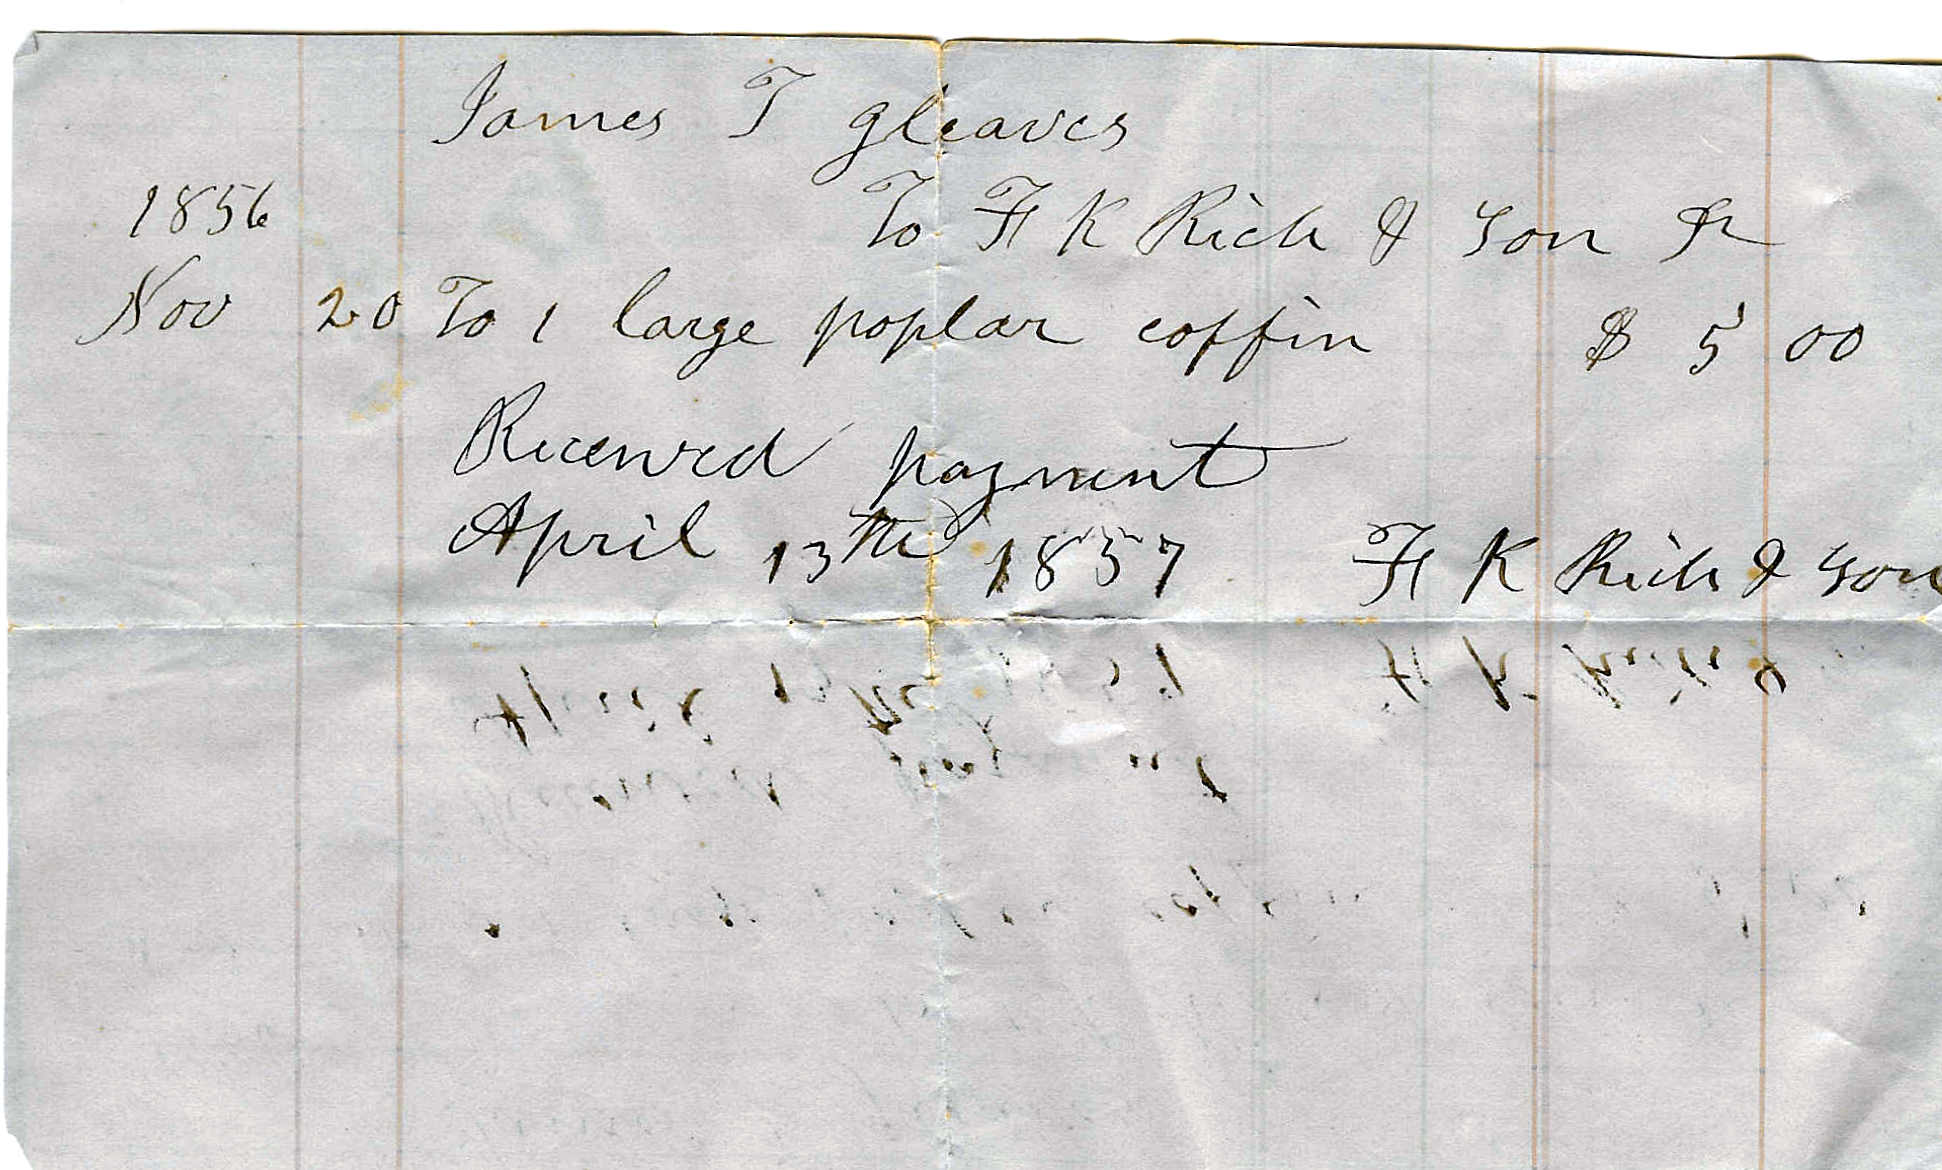 James T gleaves
1856 To F K Rich & Son Dr
Nov 20 To 1 large poplar coffin $ 5 00
Received payment
April 13th 1857 F K Rich & Son